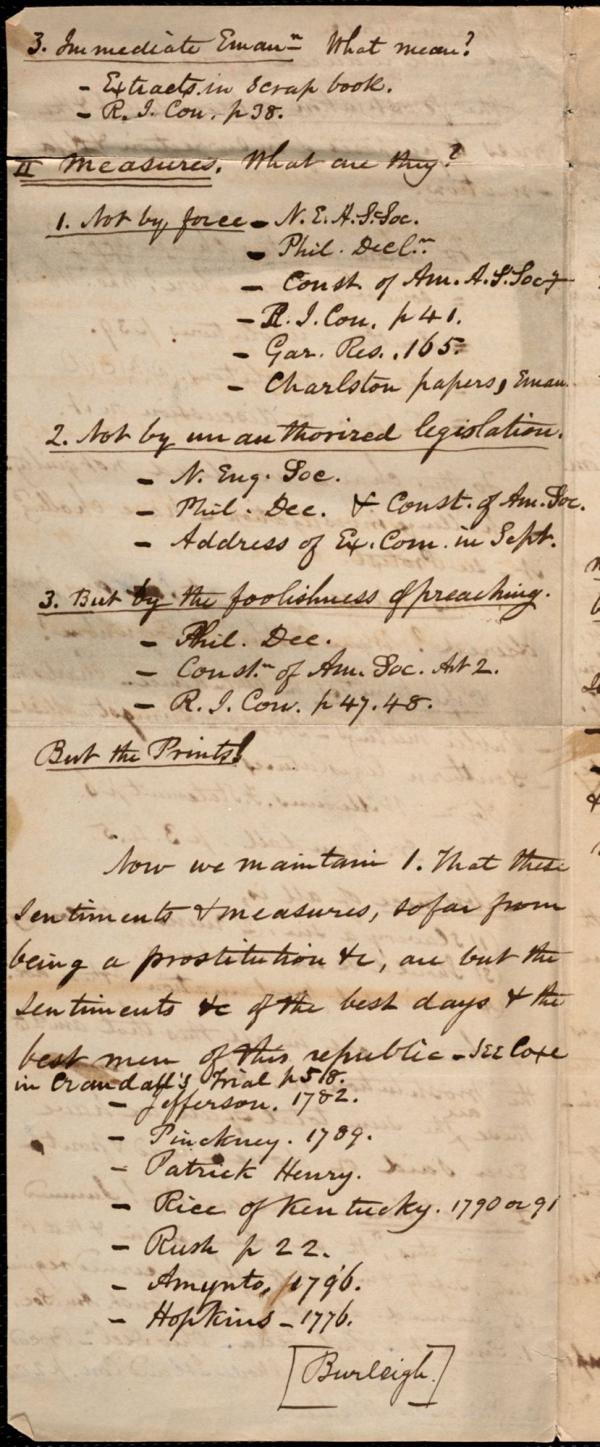 3. Immediate Eman.n What mean?
- Extracts in Scrap book.
- R. I. Con. p 38.
II Measures. What are they?
1. Not by force - N. E. A. S. Soc.
- Phil. Decl.n
- Const. of Am. A. S. Socy
- R. I. Con. p 41.
- Gar. Res. 165.
- Charlston papers, Eman.
2. Not by unauthorized legislation.
- N. Eng. Soc.
- Phil. Dec. & Const. of Am. Soc.
- Address of Ex. Com. in Sept.
3. But by the foolishness of preaching.
- Phil. Dec.
- Const.n of Am. Soc. Art 2.
- R. I. Con. p 47. 48.
But the Prints!
Now we maintain 1. That these
sentiments & measures, so far from
being a prostitution &c, are but the
sentiments &c of the best days & the
best men of this republic - See Coxe
in Crandall's Trial p 518.
- Jefferson. 1782.
- Pinckney. 1789.
- Patrick Henry.
- Rice of Kentucky. 1790 or 91
- Rush p 22.
- Amynto, 1796.
- Hopkins - 1776.
[Burleigh.]